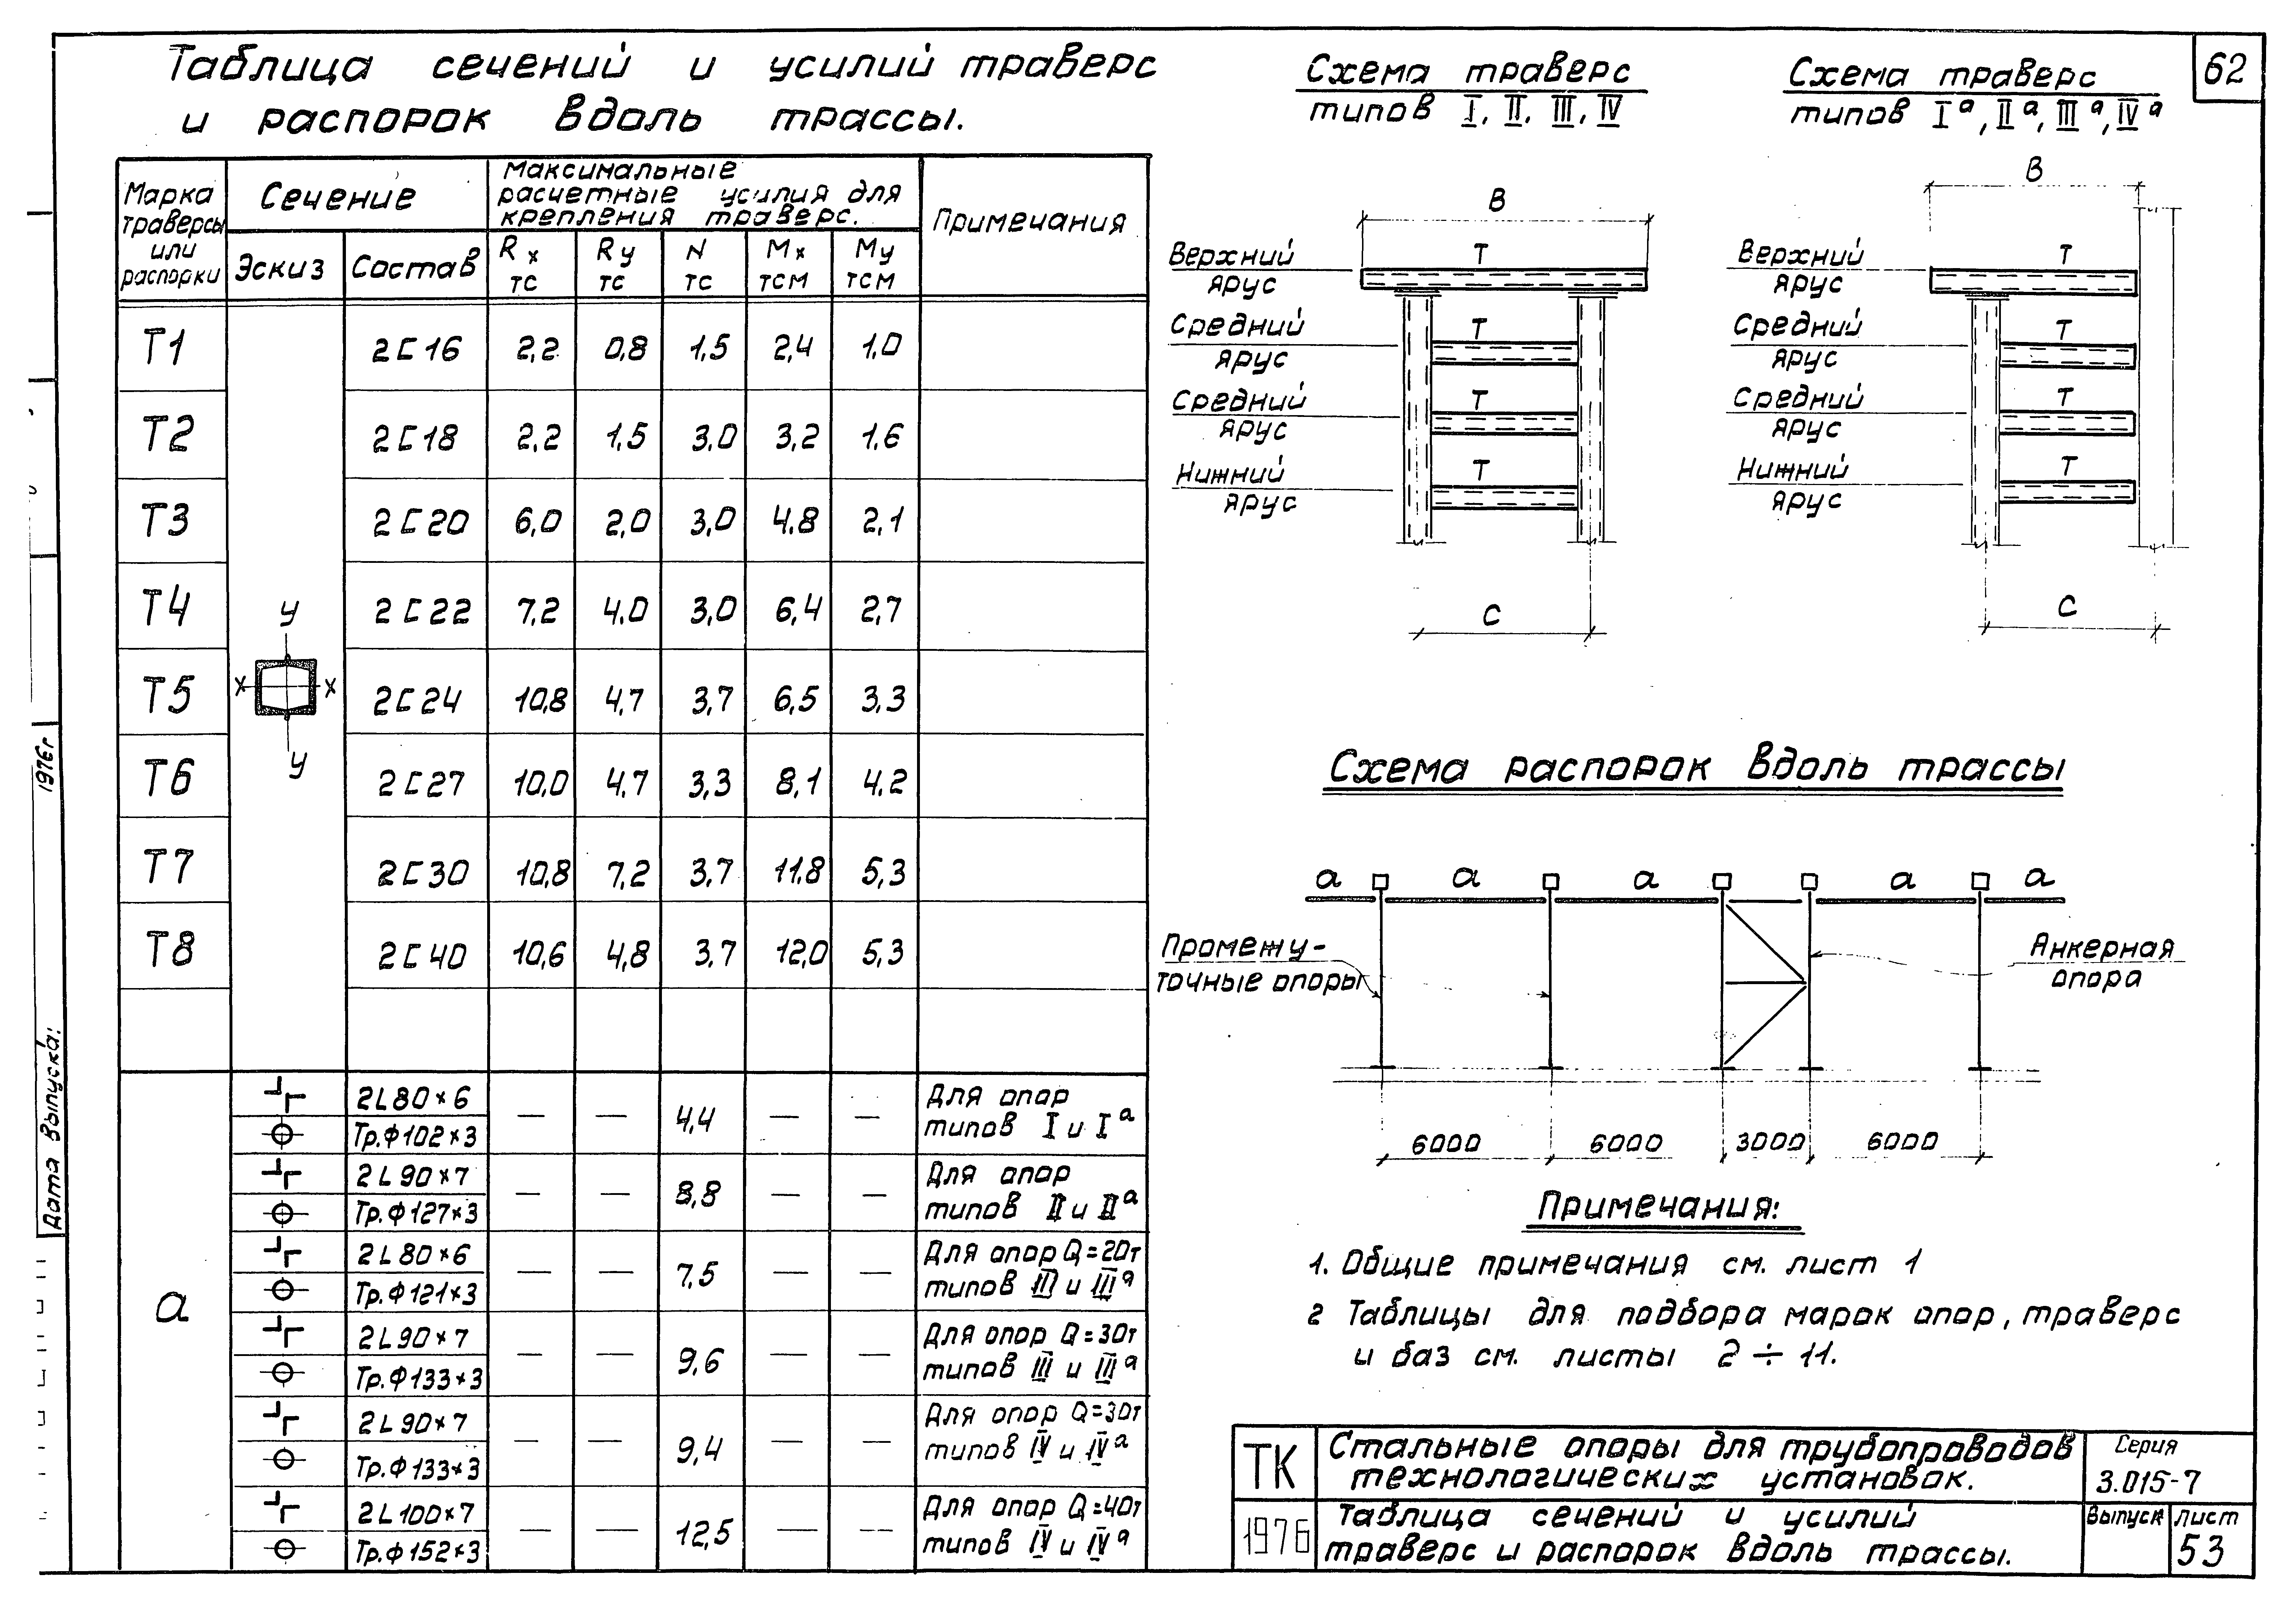 62
Таблица сечений и усилий траверс
и распорок вдоль трассы.
Марка траверсы или распорки
Сечение
Максимальные расчетные усилия для крепления траверс.
Примечания
Эскиз Состав Rx тс Rу тс N тс Mx тсм Mу тсм
Т1 2[16 2,2 0,8 1,5 2,4 1,0
Т2 2[18 2,2 1,5 3,0 3,2 1,6
Т3 2[20 6,0 2,0 3,0 4,8 2,1
Т4 2[22 7,2 4,0 3,0 6,4 2,7
Т5 2[24 10,8 4,7 3,7 6,5 3,3
Т6 2[27 10,0 4,7 3,3 8,1 4,2
Т7 2[30 10,8 7,2 3,7 11,8 5,3
Т8 2[40 10,6 4,8 3,7 12,0 5,3
у
х х
у
а
2L80×6
Тр.Ф102×3
— — 4,4 — —
Для опор
типов I и Iа
2L90×7
Тр.Ф127×3
— — 8,8 — —
Для опор
типов II и IIа
2L80×6
Тр.Ф121×3
— — 7,5 — —
Для опор Q=20т
типов III и IIIа
2L90×7
Тр.Ф133×3
— — 9,6 — —
Для опор Q=30т
типов III и IIIа
2L90×7
Тр.Ф133×3
— — 9,4 — —
Для опор Q=30т
типов IV и IVа
2L100×7
Тр.Ф152×3
— — 12,5 — —
Для опор Q=40т
типов IV и IVа
Схема траверс
типов I, II, III, IV
В
Верхний
ярус
Т
Средний
ярус
Т
Средний
ярус
Т
Нижний
ярус
Т
С
Схема траверс
типов Iа, IIа, IIIа, IVа
В
Верхний
ярус
Т
Средний
ярус
Т
Средний
ярус
Т
Нижний
ярус
Т
С
Схема распорок вдоль трассы
а а а а а
Промежу-
точные опоры
Анкерная
опора
6000 6000 3000 6000
Примечания:
1. Общие примечания см. лист 1
2 Таблицы для подбора марок опор, траверс
и баз см. листы 2÷11.
ТК
Стальные опоры для трубопроводов
технологических установок.
Серия
3.015-7
1976
Таблица сечений и усилий
траверс и распорок вдоль трассы.
Выпуск
Лист
53
Дата выпуска:
1976г